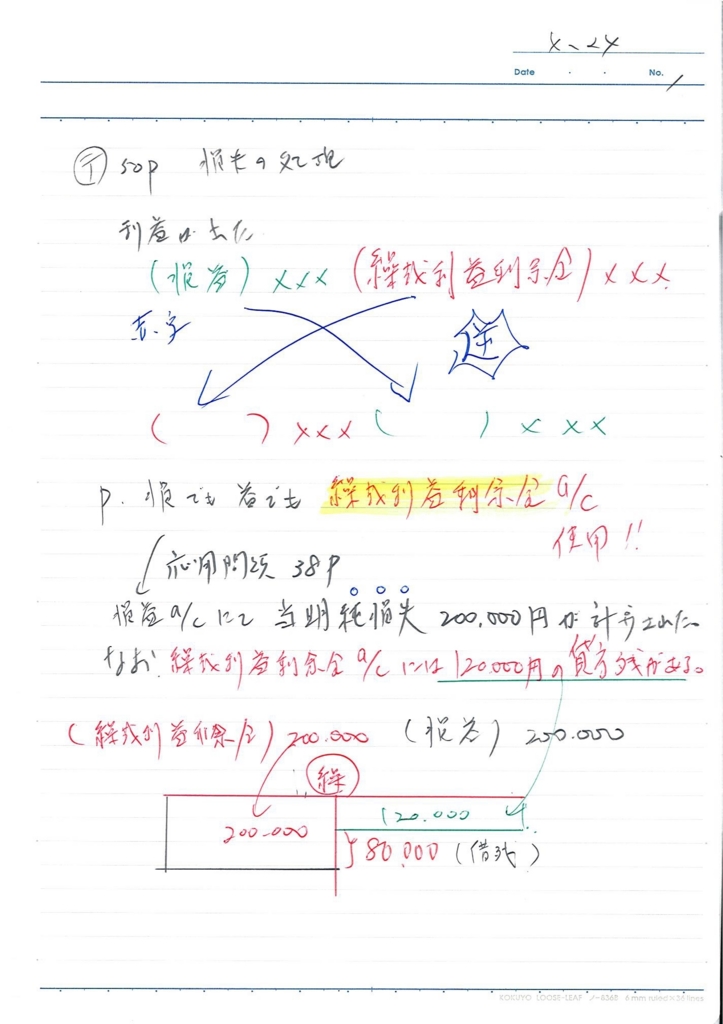 X-24
Date ・ ・ No. 1
㋢ 50P 損失の処理
利益が出た
(損益) ××× (繰越利益剰余金) ×××
赤字 逆
( ) ××× ( ) ×××
P. 損でも益でも 繰越利益剰余金 a/c
使用!!
応用問題 38P
損益a/cにて 当期純損失 200,000円が計算された
なお 繰越利益剰余金 a/cには 120,000円の貸方残がある。
(繰越利益剰余金) 200,000 (損益) 200,000
繰
200,000 120,000
80,000 (借残)
KOKUYO LOOSE-LEAF ノ-836B 6 mm ruled×36 lines